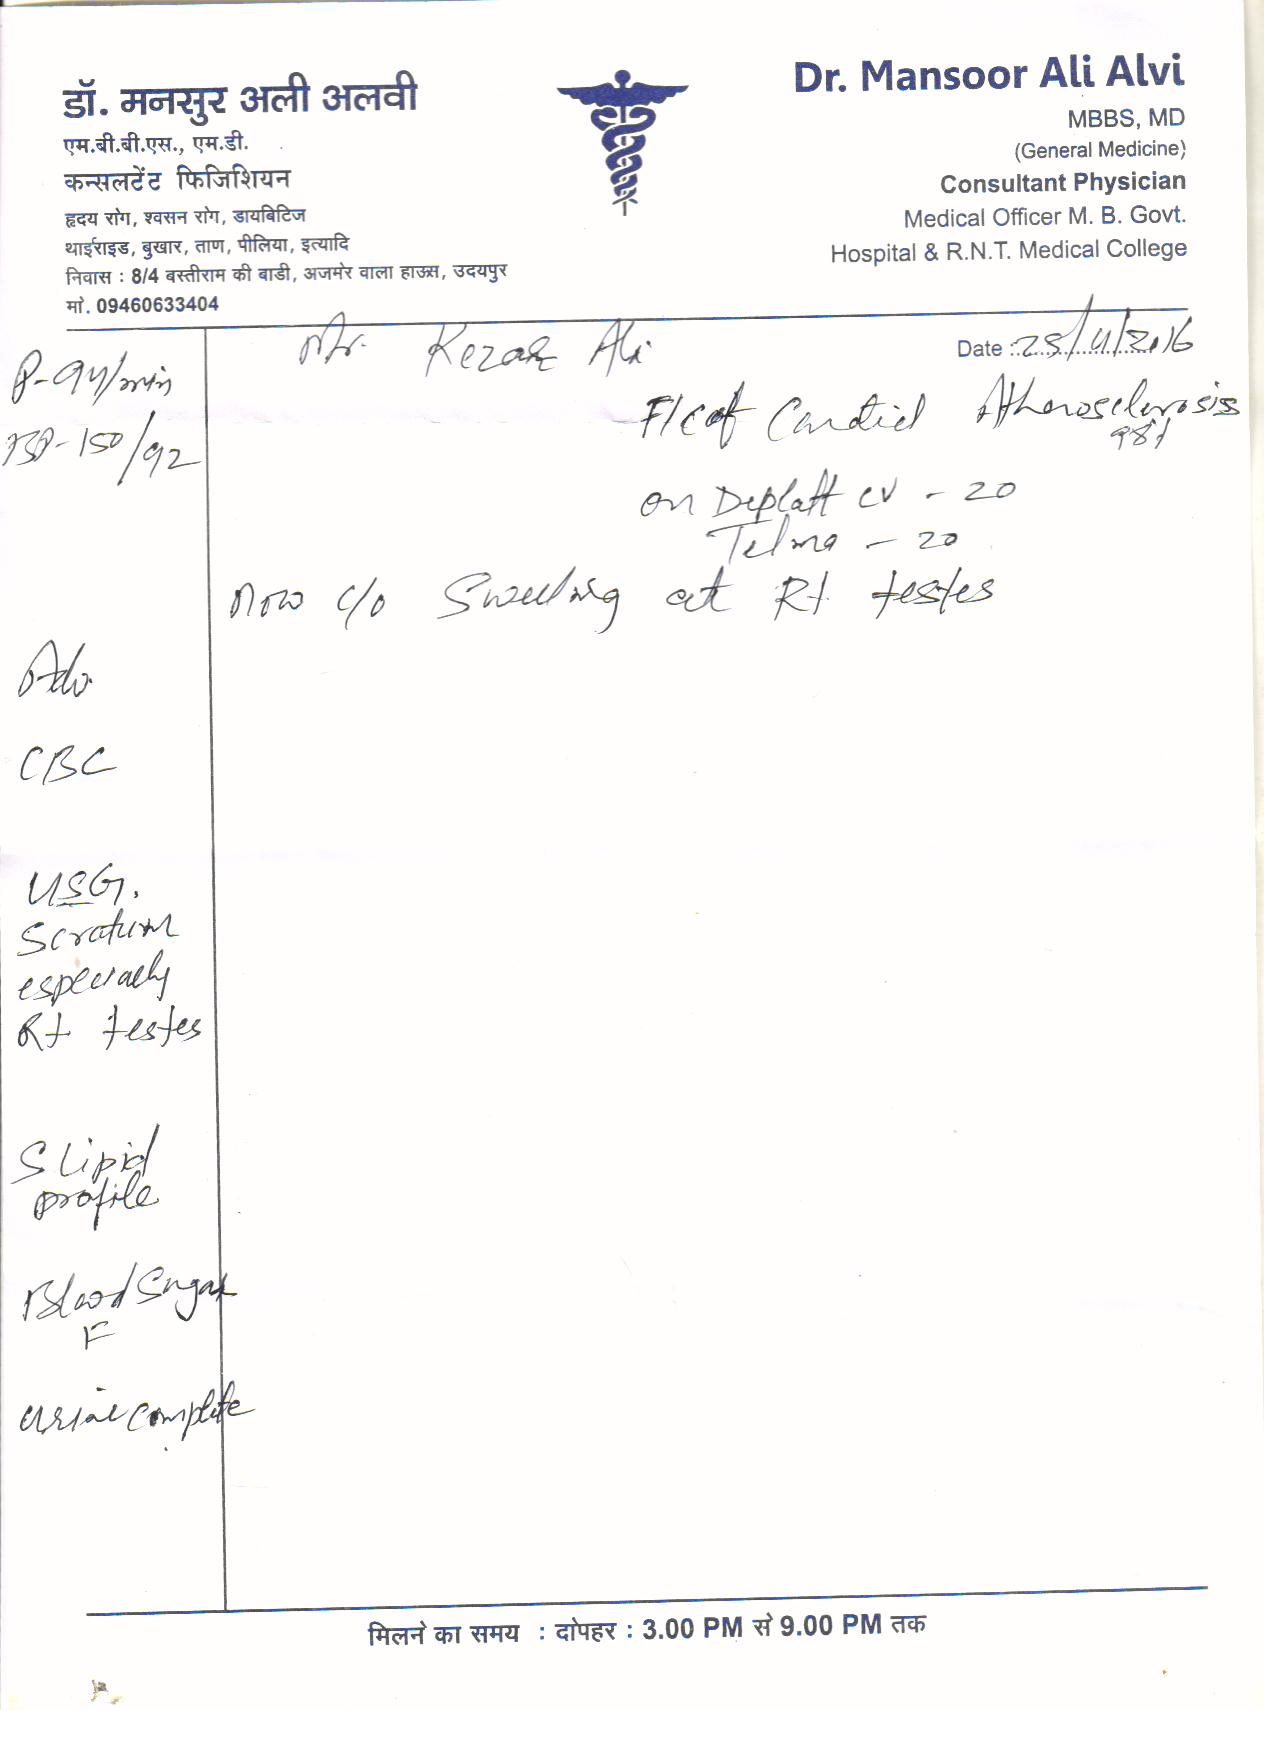 डॉ. मनसुर अली अलवी
एम.बी.बी.एस., एम.डी.
कन्सलटेंट फिजिशियन
हृदय रोग, श्वसन रोग, डायबिटिज
थाईराइड, बुखार, ताण, पीलिया, इत्यादि
निवास : 8/4 बस्तीराम की बाडी, अजमेर वाला हाऊस, उदयपुर
मो. 09460633404
Dr. Mansoor Ali Alvi
MBBS, MD
(General Medicine)
Consultant Physician
Medical Officer M. B. Govt.
Hospital & R.N.T. Medical College
Mr. Ali
Date : /2016
P-94/min
BP-150/92
F/c of Atherosclerosis
on Deplatt CV - 20
Telma - 20
Now c/o Swelling at Rt testes
Adv.
CBC
USG.
Scrotum
especially
Rt testes
S Lipid
profile
Blood Sugar
F
Urine complete
मिलने का समय : दोपहर : 3.00 PM से 9.00 PM तक